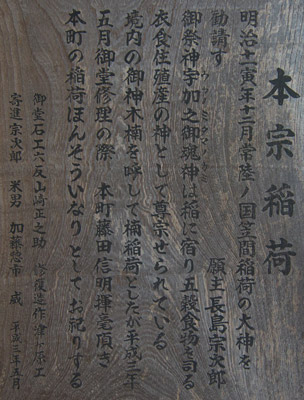 本宗稲荷
明治十一寅年十二月常陸ノ国笠間稲荷の大神を
勧請す　願主長島宗次郎
御祭神宇加之御魂神は稲に宿り五穀食物を司る
ウカノミタマノカミ
衣食住殖産の神として尊宗せられている
境内の御神木楠を呼して楠稲荷としたが平成三年
五月御堂修理の際　本町藤田信明揮毫頂き
本町の稲荷ほんそういなりとしてお祀りする
御堂石工六反山崎正之助　修復造作津ヶ原工
寄進宗次郎　米男　加藤惣市　威　平成三年五月